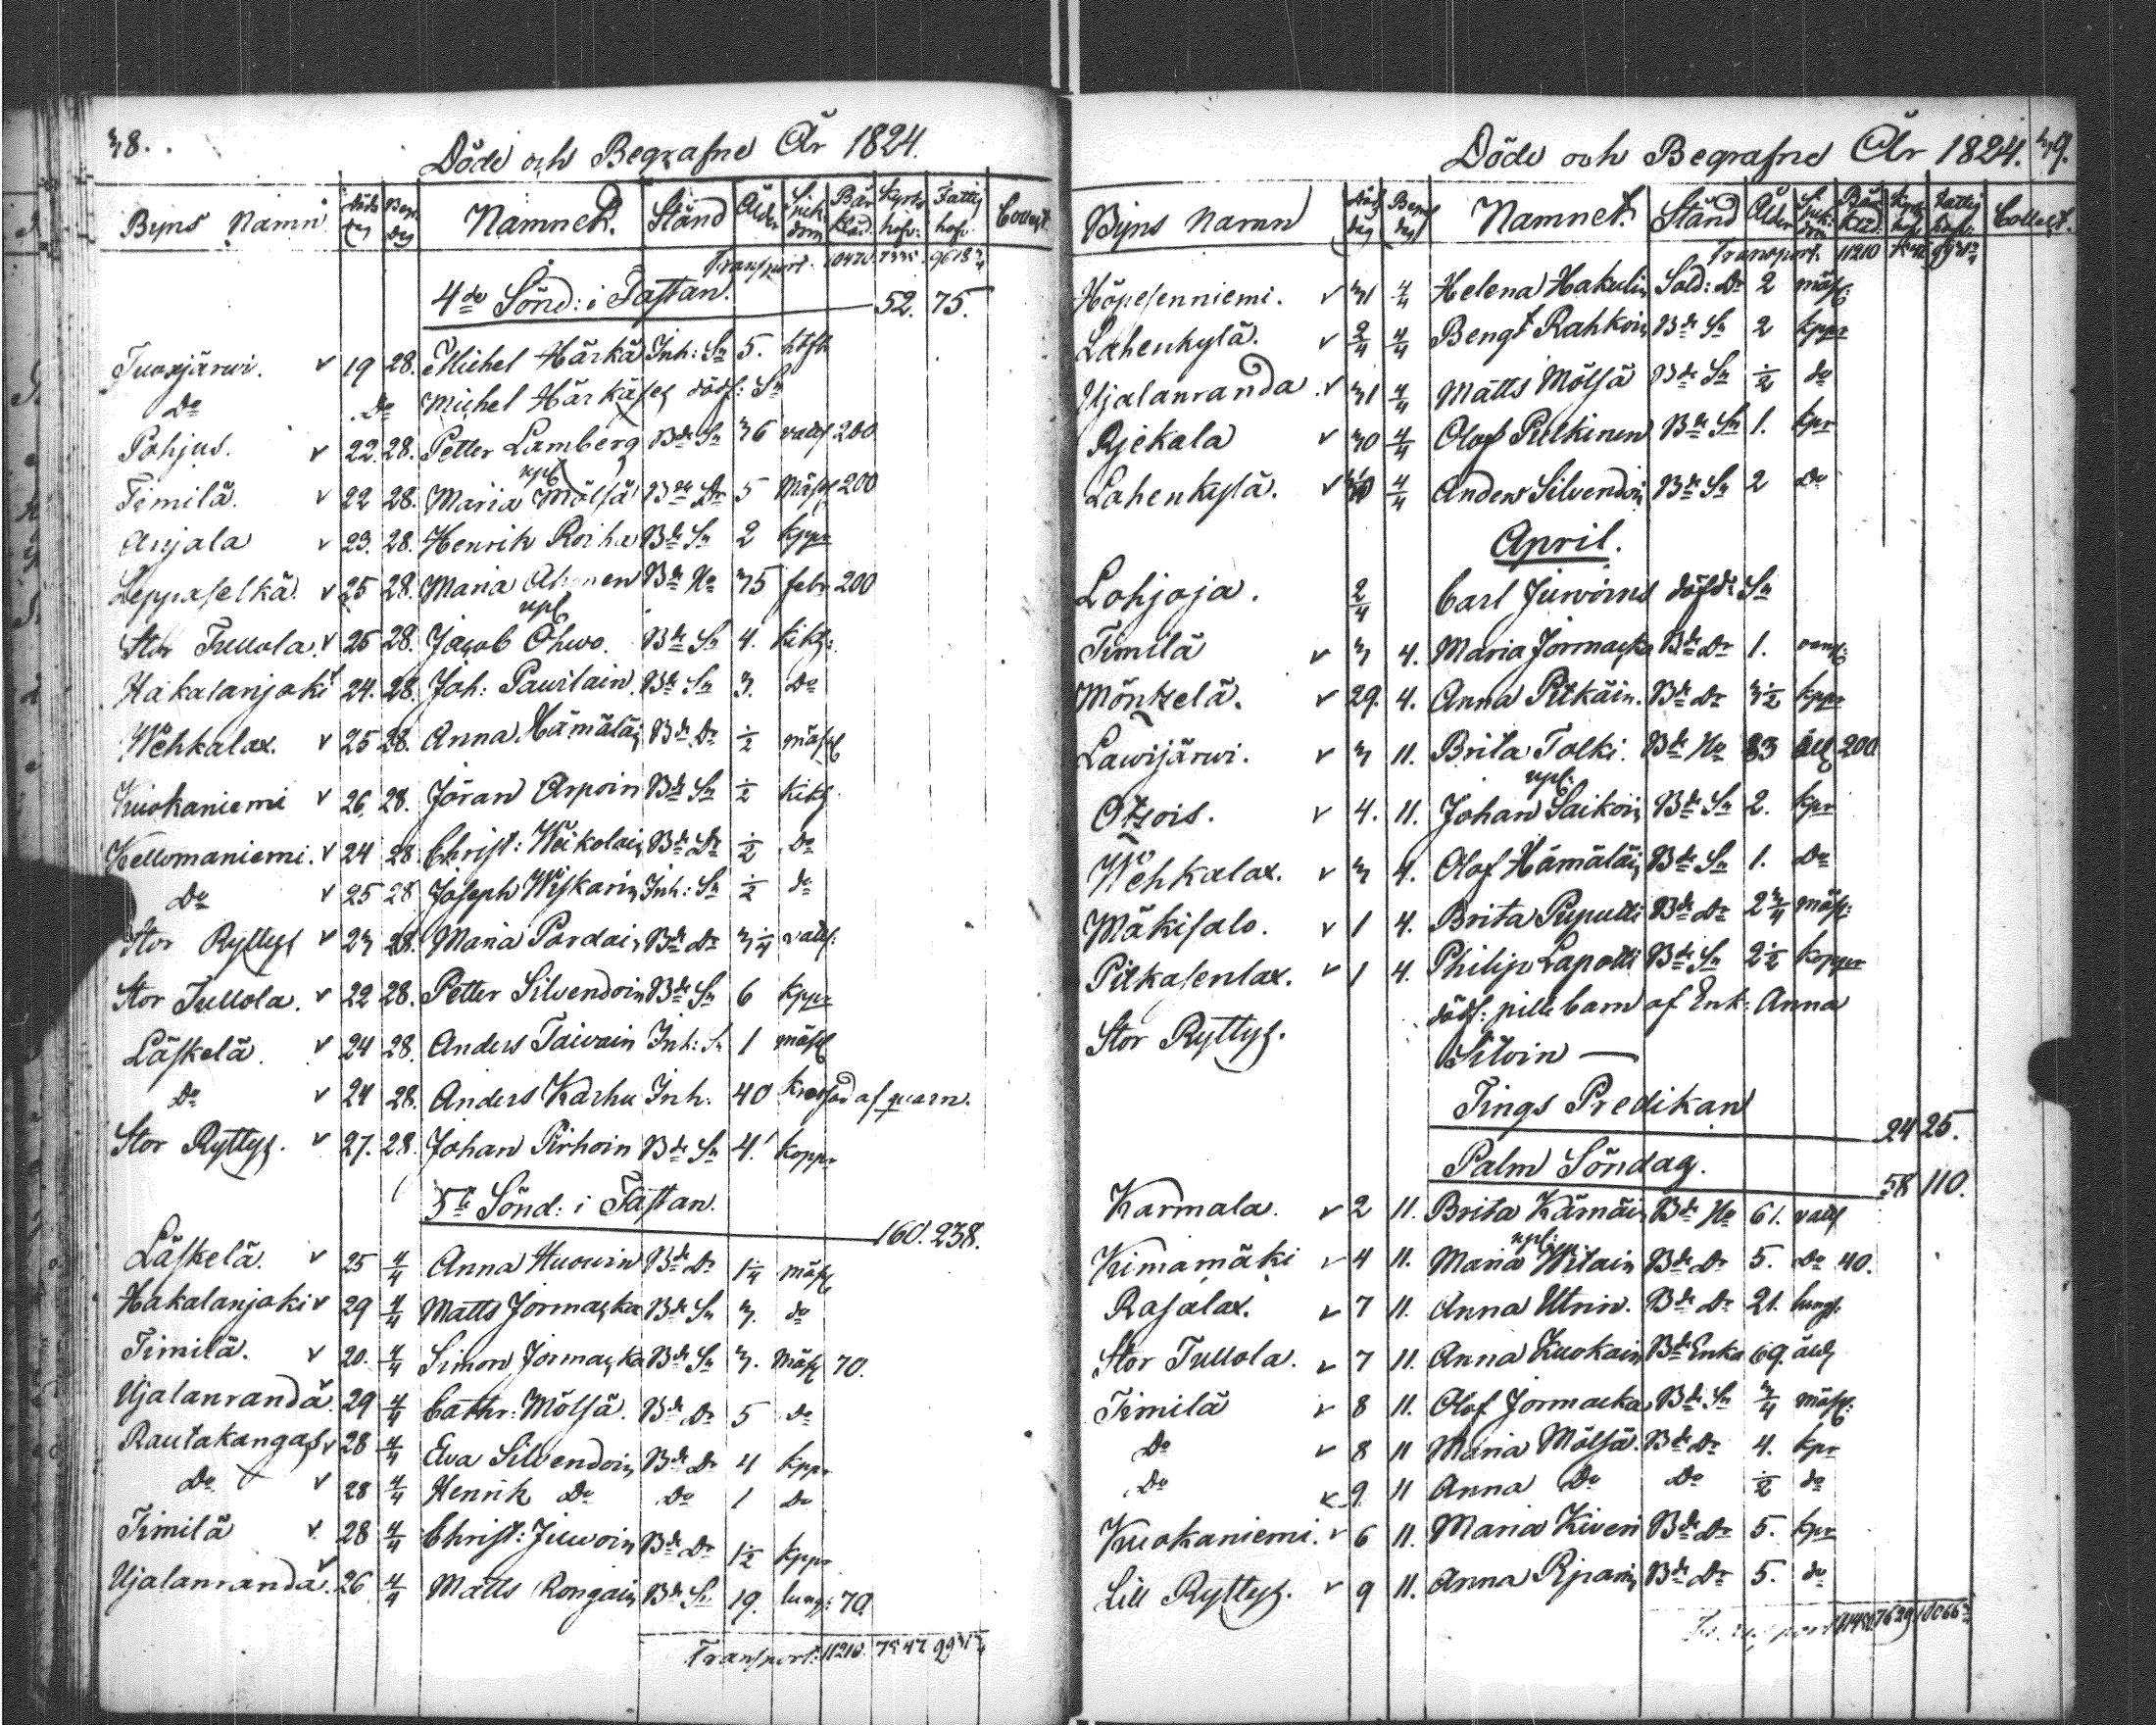 38.
Döde och Begrafne År 1824.
Byns Namn Döds dag Begr: dag Namnet. Stånd Ålder Sjukdom Bår Kläd. Kyrko hafv: Fattig hafv: Collect.
Transport. 10470. 7335. 9618
4de Sönd: i Fastan. 52. 75.
Tuoxjärwi. v 19 28. Michel Härkä Inh: Sn 5.
Do Do Michel Härkäses dödf: Sn
Pohjus. v 22. 28. Petter Lamberg Bde Sn 36 vattus 200
Timilä. v 22 28. Maria Mölsä Bde Dr 5 Mässl 200
Anjala v 23. 28. Henrik Roiha Bde Sn 2 kppr
Leppäselkä. v 25 28. Maria Bde Ha 35 febr 200
Stor Tullola. v 25 28. Jacob Ohwo. Bde Sn 4. kikh:
Hakalanjoki v 24. 28. Joh: Pawilain Bde Sn 3. Do
Wehkalax. v 25 28. Anna Hämäläin Bde Dr ½ mässl
Kuokaniemi v 26. 28. Jöran Arpoin Bde Sn ½ kikh
Kellomaniemi. v 24 28 Christ: Weikolain Bde Dr ½ Do
Do v 25 28 Joseph Wiskarin Inh: Sn ½ do
Stor Ryttys v 23 28. Maria Pardain Bde Dr 3¼ vattus:
Stor Tullola. v 22 28. Petter Silvendoin Bde Sn 6 kppr
Läskelä. v 24 28. Anders Taivain Inh: Sn 1 mässl
Do v 24 28. Anders Karhu Inh. 40 krossad af quarn.
Stor Ryttys. v 27. 28. Johan Pirhoin Bde Sn 4. koppr
5te Sönd: i Fastan. 160. 238.
Läskelä. v 25 4/4 Anna Huowin Bde Dr 1¼ mässl
Hakalanjoki v 29 4/4 Matts Jormacka Bde Sn 3. do
Timilä. v 20. 4/4 Simon Jormacka Bde Sn 3. Mässl 70.
Ujalanranda 29 4/4 Cathr: Mölsä. Bde Dr 5 do
Rautakangas v 28 4/4 Eva Silvendoin Bde Dr 4 kppr
Do v 28 4/4 Henrik Do Do 1 Do
Timilä v 28 4/4 Christ: Juwoin Bde Dr 1½ kppr
Ujalanranda. v 26 4/4 Matts Rongain Bde Sn 19. lungs: 70.
Transport: 11210. 7547. 9931
Döde och Begrafne År 1824. 39.
Byns Namn Döds dag Begr dag Namnet. Stånd Ålder Sjukdom Bår Kläd: Kyrko hafv: Fattig hafv: Collect.
Transport. 11210 7547 9931
Höpesenniemi. v 31 4/4 Helena Hakulin Sold: Dr 2 mässl:
Lahenkylä. v 2/4 4/4 Bengt Rahkoin Bde Sn 2 kppr
Ujalanranda. v 31 4/4 Matts Mölsä Bde Sn ½ do
Rjekala v 30 4/4 Olof Pulkinen Bde Sn 1. kpr
Lahenkylä. v 4/4 Anders Silvendoin Bde Sn 2 Do
April.
Lohjoja. 2/4 Carl Juwoins dödfdt Sn
Timilä v 3 4. Maria Jormacka Bde Dr 1.
Möntzelä. v 29. 4. Anna Pitkäin. Bde Dr 3½ kppr
Lawijärwi. v 3 11. Brita Tolki. Bde Ha 83 åld 200
Otzois. v 4. 11. Johan Saikoin Bde Sn 2. kpr
Wehkalax. v 3 4. Olof Hämäläin Bde Sn 1. Do
Mäkisalo. v 1 4. Brita Puputti Bde Dr 2¾ mässl:
Pitkasenlax. v 1 4. Philip Lapotti Bde Sn 2½ koppr
Stor Ryttys. dödf: pilt barn af Enk: Anna
Silvin —
Tings Predikan 24 25.
Palm Söndag. 58 110.
Karmala. v 2 11. Brita Kärnäin Bde Ha 61. vattus
Kimamäki v 4 11. Maria Wilain Bde Dr 5. Do 40.
Rasalax. v 7 11. Anna Utrin. Bde Dr 21. lungs:
Stor Tullola. v 7 11. Anna Kuokain Bde Enka 69. åld
Timilä v 8 11. Olof Jormacka Bde Sn ¾ mässl:
Do v 8 11 Maria Mölsä. Bde Dr 4. kpr
Do v 9 11 Anna Do Do ½ do
Kuokaniemi. v 6 11. Maria Kiveri Bde Dr 5. kpr
Lill Ryttys. v 9 11. Anna Rjparin Bde Dr 5. do
Transport 7629